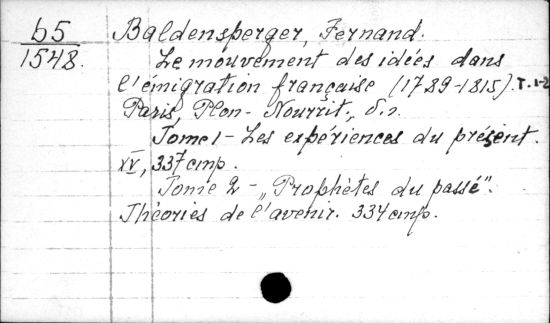 b5
1548.
Baldensperger, Fernand.
Le mouvement des idées dans
l'émigration française (1789-1815). T. 1-2
Paris, Plon-Nourrit,
Tome 1 - Les expériences du présent.
XV, 337 стр.
Tome 2 - „Prophètes du passé".
Théories de l'avenir. 334 стр.